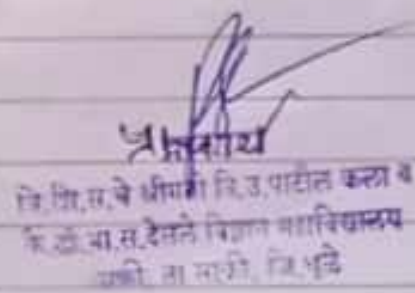 प्राचार्य
वि.शि.स.चे श्रीमती वि.उ.पाटील कला व
कै.डॉ.बा.स.देसले विज्ञान महाविद्यालय
साक्री, ता साक्री, जि.धुळे